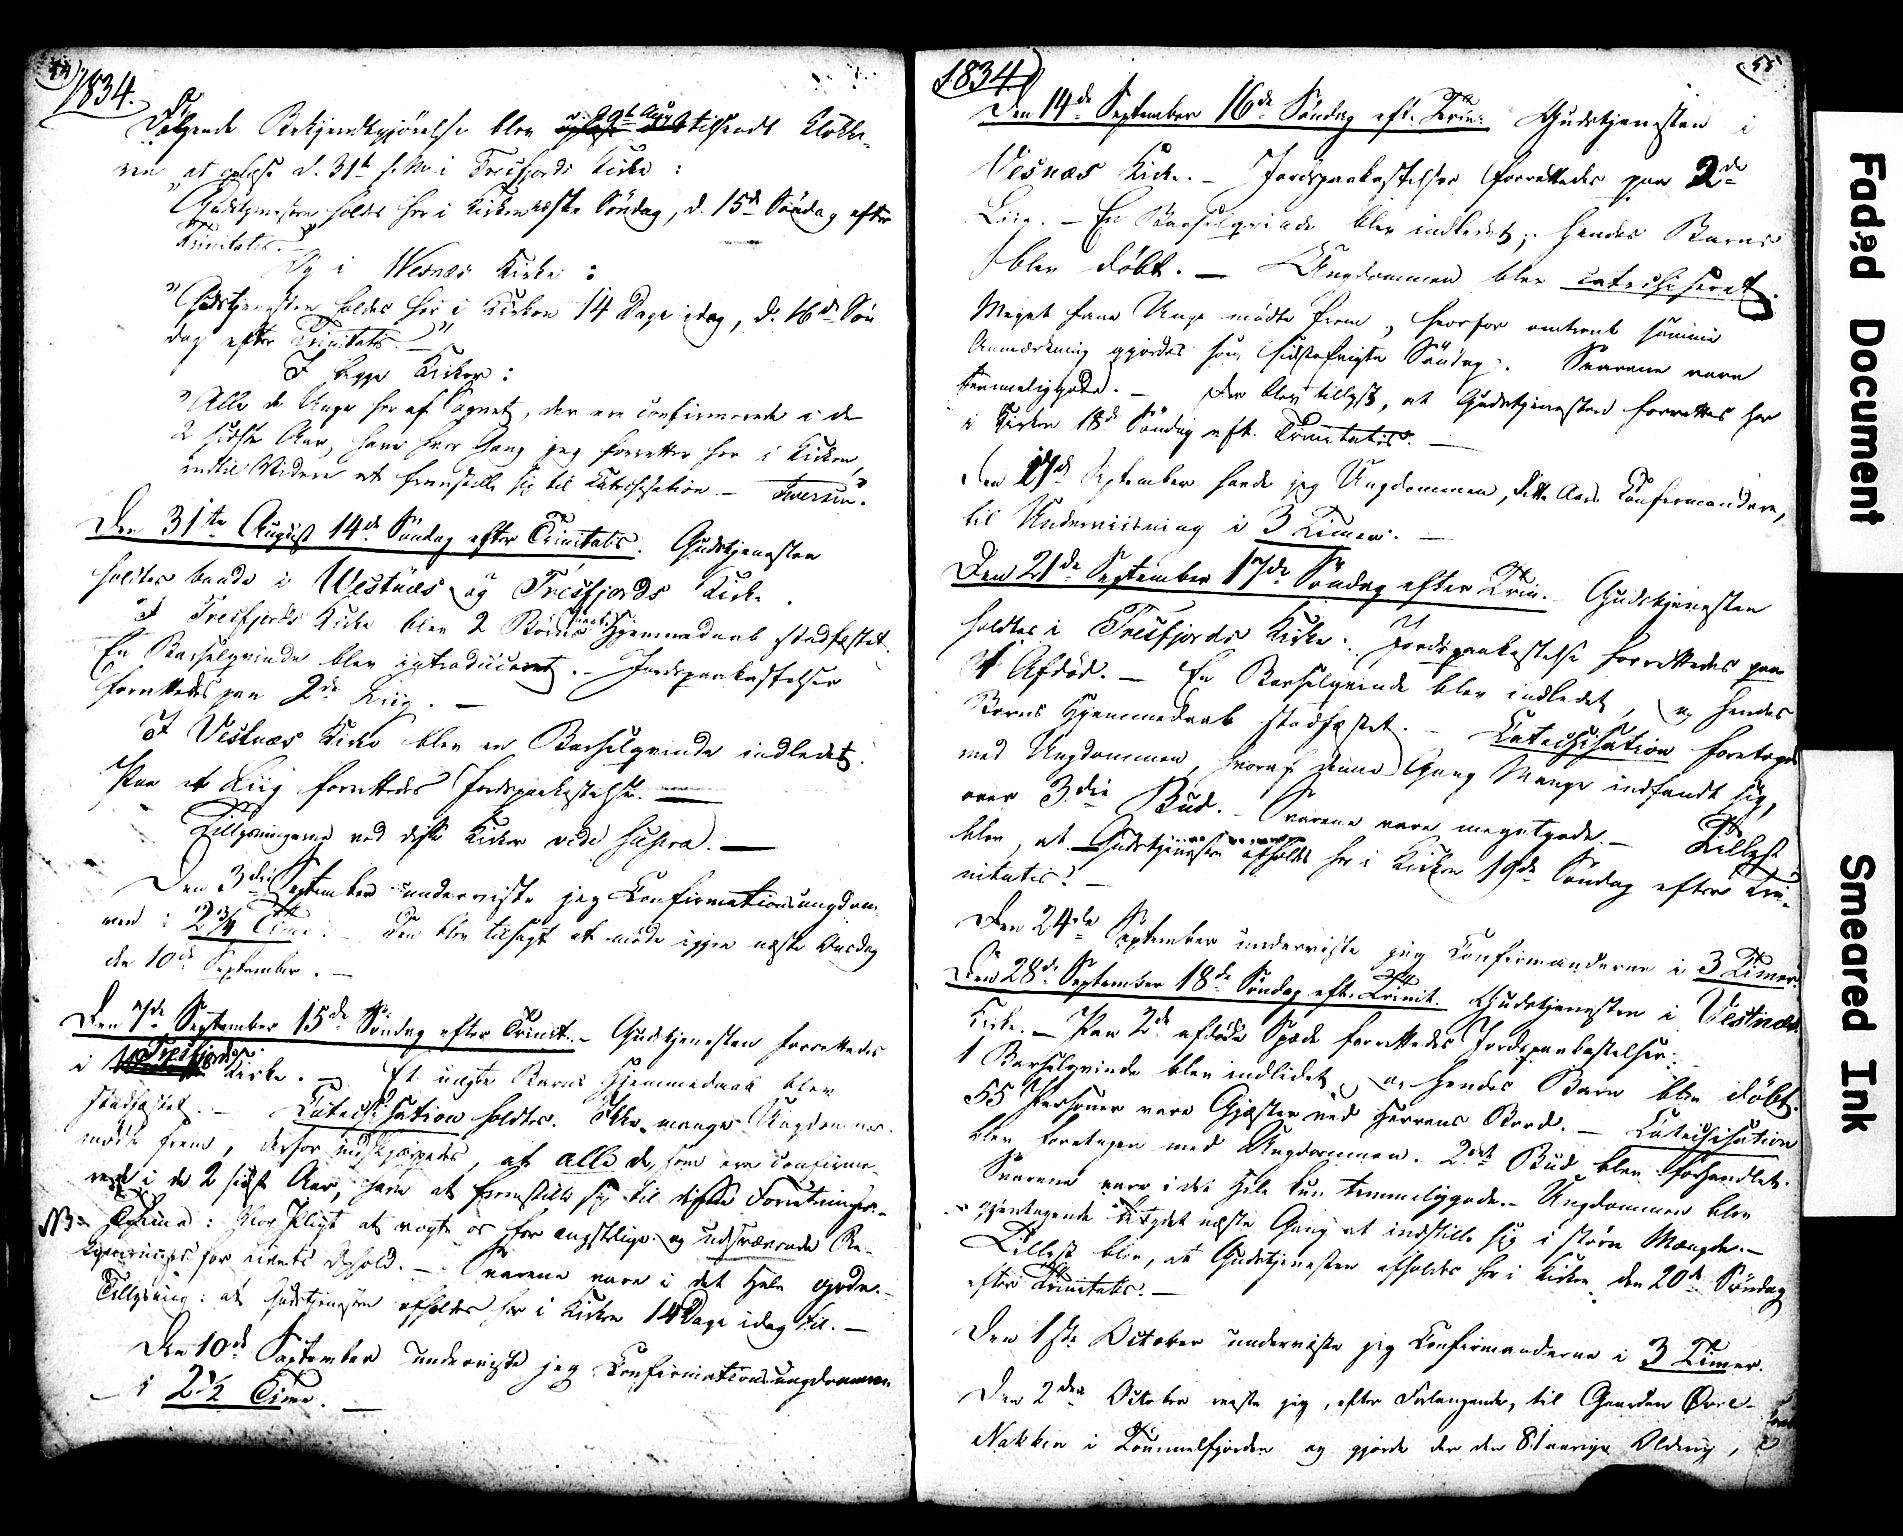 54)
1834.
Følgende Bekjendtgjörelse blev d. 29de Aug. tilsendt Klokke-
ren at oplæse d. 31te s. M. i Tresfjords Kirke :
"Gudstjenesten holdes her i Kirken næste Söndag, d. 15de Söndag efter
Trinitatis."
Og i Wesnæs Kirke :
"Gudstjenesten holdes her i Kirken 14 Dage idag, d. 16de Søn
dag efter Trinitatis. —"
I begge Kirker :
"Alle de Unge her af Sognet, der ere confirmerede i de
2 sidste Aar, have hver Gang jeg forretter her i Kirken,
indtil Videre at fremstille sig til Catechisation. — Iversen."
Den 31te August 14de Söndag efter Trinitatis. Gudstjenesten
holdtes baade i Westnæs og Tresfjords Kirke.
I Tresfjords Kirke blev 2 Börns Hjemmedaab stadfæstet.
En Barselqvinde blev introduceret. — Jordspaakastelser
forrettedes paa 2de Liig. —
I Vestnæs Kirke blev en Barselqvinde indledet.
Paa et Liig forrettedes Jordspaakastelse. —
Tillysningerne ved disse Kirker vide supra. —
Den 3die September underviste jeg Confirmationsungdom-
men i 2 3/4 Time. — Den blev tilsagt at möde igjen næste Onsdag
den 10de September. —
Den 7de September 15de Söndag efter Trinit. — Gudstjenesten forrettedes
i Tresfjords Kirke. — Et uægte Barns Hjemmedaab blev
stadfæstet. — Catechisation holdtes. Ikke mange Ungdommer
mødte frem, derfor indskjærpedes, at alle de, som ere confirme-
rede i de 2 sidste Aar, have at fremstille sig til disse Forretninger. —
NB: Thema: Vor Pligt at vogte os for ængstlige og udsvævende Be-
kymringer for Livets Ophold. — Svarene vare i det Hele gode. —
Tillysning: at Gudstjenesten afholdes her i Kirken 14 Dage idag til. —
Den 10de September underviste jeg Confirmationsungdommen
i 2 1/2 Time. —
1834)
(55
Den 14de September 16de Söndag eft. Trin: Gudstjenesten i
Vesnæs Kirke. — Jordspaakastelser forrettedes paa 2de
Liig. — En Barselqvinde blev indledet; hendes Barn
blev döbt. — Ungdommen blev catechiseret.
Meget faae Unge mödte frem, hvorfor omtrent samme
Anmærkning gjordes som sidstafvigte Söndag. Svarene vare
temmeliggode. — Der blev tillyst, at Gudstjenesten forrettes her
i Kirken 18de Söndag eft. Trinitatis. —
Den 17de September havde jeg Ungdommen, dette Aars Confirmandere,
til Underviisning i 3 Timer. —
Den 21de September 17de Söndag efter Trin. Gudstjenesten
holdtes i Tresfjords Kirke. Jordspaakastelse forrettedes paa
1 Afdöd. — En Barselqvinde blev indledet, og hendes
Barns Hjemmedaab stadfæstet. — Catechisation foretoges
med Ungdommen, hvoraf denne Gang Mange indfandt sig,
over 3die Bud. — Svarene vare megetgode. — Tillyst
blev, at Gudstjenesten afholdes her i Kirken 19de Söndag efter Tri-
nitatis. —
Den 24de September underviste jeg Confirmanderne i 3 Timer
Den 28de September 18de Söndag eft. Trinit. Gudstjenesten i Vestnæs
Kirke. — Paa 2de afdöde Spæde forrettedes Jordspaakastelser.
1 Barselqvinde blev indledet, og hendes Barn blev döbt.
55 Personer vare Gjæster ved Herrens Bord. — Catechisation
blev foretagen med Ungdommen. 2det Bud blev forhandlet.
Svarene vare i det Hele kun temmeliggode. — Ungdommen blev
gjentagende betydet næste Gang at indstille sig i större Mængde. —
Tillyst blev, at Gudstjenesten afholdes her i Kirken den 20de Söndag
efter Trinitatis. —
Den 1ste October underviste jeg Confirmanderne i 3 Timer.
Den 2den October reiste jeg, efter Forlangende, til Gaarden Övre-
Nakken i Tommelfjorden og gjorde der den 81aarige Olding,
Faded Document
Smeared Ink